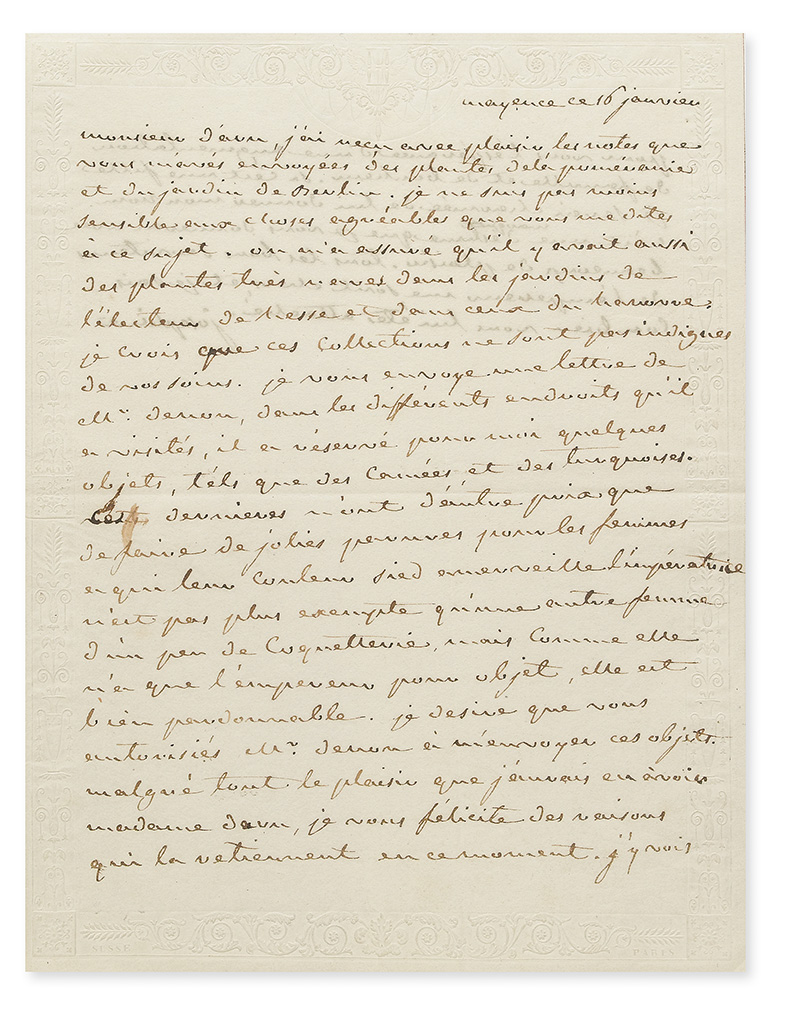 mayence ce 16 janvier
monsieur daru, j'ai reçu avec plaisir les notes que
vous mavés envoyées des plantes dela poméranie
et du jardin de Berlin. je ne suis pas moins
sensible aux choses agréables que vous me dites
à ce sujet. on m'a assuré qu'il y avait aussi
des plantes très rares dans les jardins de
l'électeur de hesse et dans ceux du hanovre,
je crois que ces collections ne sont pas indignes
de vos soins. je vous envoye une lettre de
Mr. denon, dans les différents endroits qu'il
a visités, il a réservé pour moi quelques
objets, téls que des Camées et des turquoises.
ces dernieres n'ont d'autre prix que
de faire de jolies parures pour les femmes
a qui leur couleur sied a merveille l'impératrice
n'est pas plus exempte qu'une autre femme
d'un peu de Coquetterie, mais Comme elle
n'a que l'empereur pour objet, elle est
bien pardonnable. je desire que vous
autorisiés Mr. denon à m'envoyer ces objets.
malgré tout le plaisir que j'aurais eu à voir
madame daru, je vous félicite des raisons
qui la retiennent en ce moment. j'y vois
PARIS